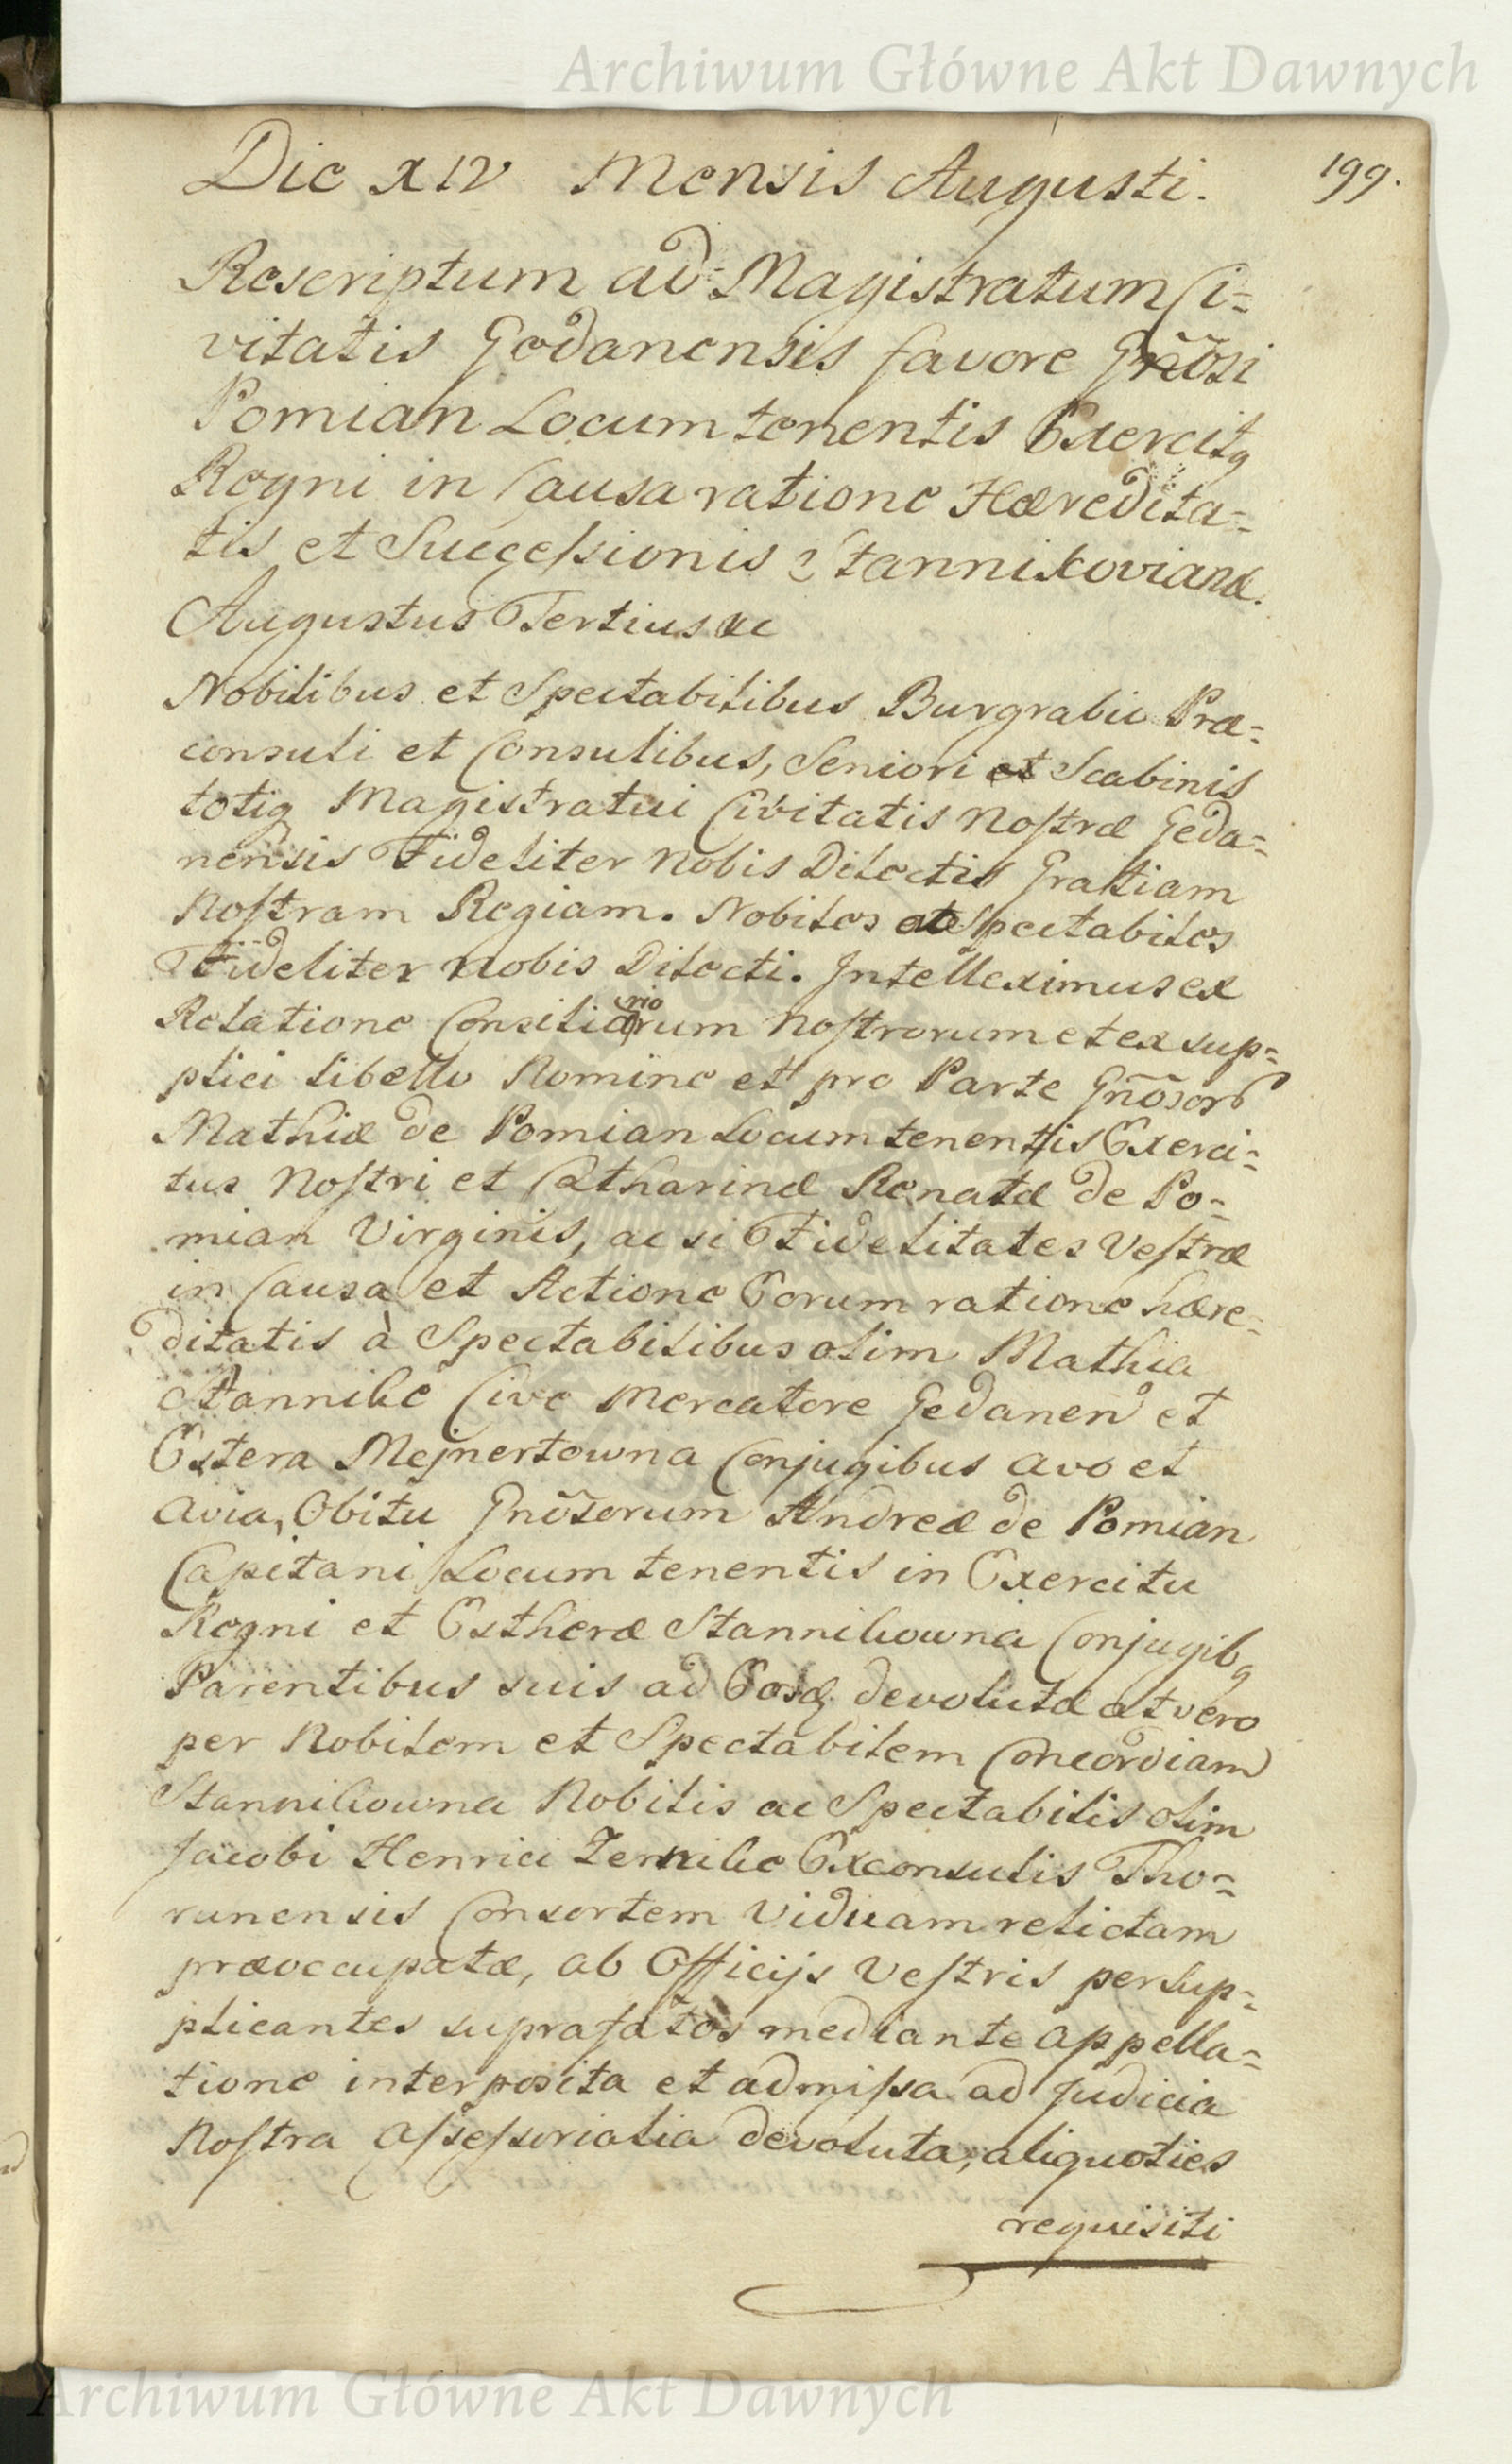 Archiwum Główne Akt Dawnych
199.
Die XIV Mensis Augusti.
Rescriptum ad Magistratum Ci=
vitatis Gedanensis favore Gnõsi
Pomian Locum tenentis Exercitq
Regni in Causa ratione Hæredita=
tis et Successionis Stannikovianæ.
Augustus Tertius &c
Nobilibus et Spectabilibus Burgrabio Præ=
consuli et Consulibus, Seniori et Scabinis
totiq Magistratui Civitatis Nostræ Geda=
nensis Fideliter Nobis Dilectis Gratiam
Nostram Regiam. Nobiles ac Spectabiles
Fideliter Nobis Dilecti. Intelleximus ex
Relatione Consiliariorum Nostrorum et ex sup=
plici libello Nomine et pro Parte Gnõsor
Mathiæ de Pomian Locum tenentis Exerci=
tus Nostri et Catharinæ Renatæ de Po=
mian Virginis, ac si Fidelitates Vestræ
in Causa et Actione Eorum ratione hære=
ditatis à Spectabilibus olim Mathia
Stannike Cive Mercatore Gedanen et
Estera Mejnertowna Conjugibus avo et
avia, Obitu Gnõsorum Andreæ de Pomian
Capitani Locum tenentis in Exercitu
Regni et Estheræ Stannikowna Conjugibq
Parentibus suis ad Eosq devolutæ at vero
per Nobilem et Spectabilem Concordiam
Stannikowna Nobilis ac Spectabilis olim
Jacobi Henrici Zernike Exconsulis Tho=
runensis Consortem Viduam relictam
præoccupatæ, ab Officijs Vestris per sup=
plicantes suprafatos mediante appella=
tione interposita et admissa ad Judicia
Nostra Assessorialia devoluta, aliquoties
requisiti
Archiwum Główne Akt Dawnych